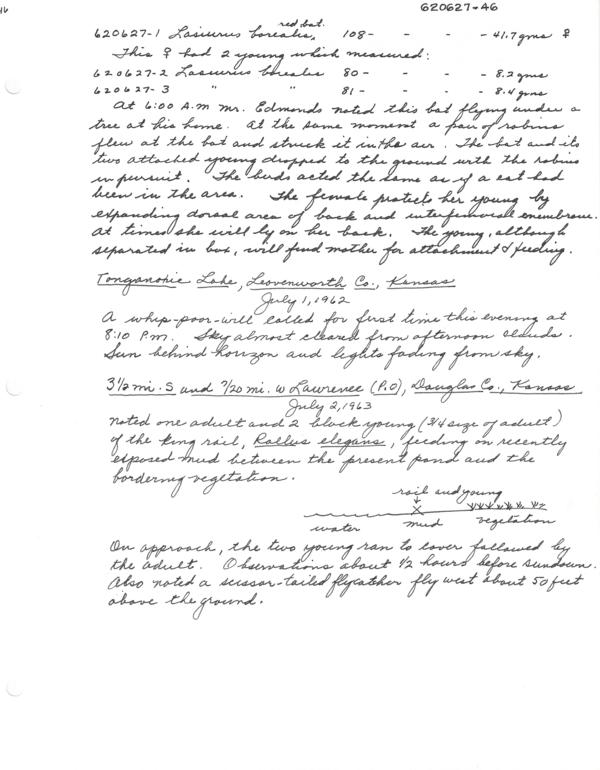 620627-46
46
red bat.
620627-1 Lasiurus borealis, 108- - - - 41.7 gms ♀
This ♀ had 2 young which measured:
620627-2 Lasiurus borealis 80- - - - 8.2 gms
620627-3 " " 81- - - - 8.4 gms
At 6:00 A.M Mr. Edmonds noted this bat flying under a
tree at his home. At the same moment a pair of robins
flew at the bat and struck it in the air. The bat and its
two attached young dropped to the ground with the robins
in pursuit. The birds acted the same as if a cat had
been in the area. The female protects her young by
expanding dorsal area of back and interfemoral membrane.
at times she will ly on her back. The young, although
separated in box, will find mother for attachment & feeding.
Tonganoxie Lake, Leavenworth Co., Kansas
July 1, 1962
A whip-poor-will called for first time this evening at
8:10 P.M. Sky almost cleared from afternoon clouds.
Sun behind horizon and lights fading from sky.
3 1/2 mi. S and 7/20 mi. W Lawrence (P.O), Douglas Co., Kansas
July 2, 1963
noted one adult and 2 black young (3/4 size of adult)
of the king rail, Rallus elegans, feeding on recently
exposed mud between the present pond and the
bordering vegetation.
rail and young
X
water mud vegetation
On approach, the two young ran to cover followed by
the adult. Observations about 1/2 hours before sundown.
Also noted a scissor-tailed flycatcher fly west about 50 feet
above the ground.